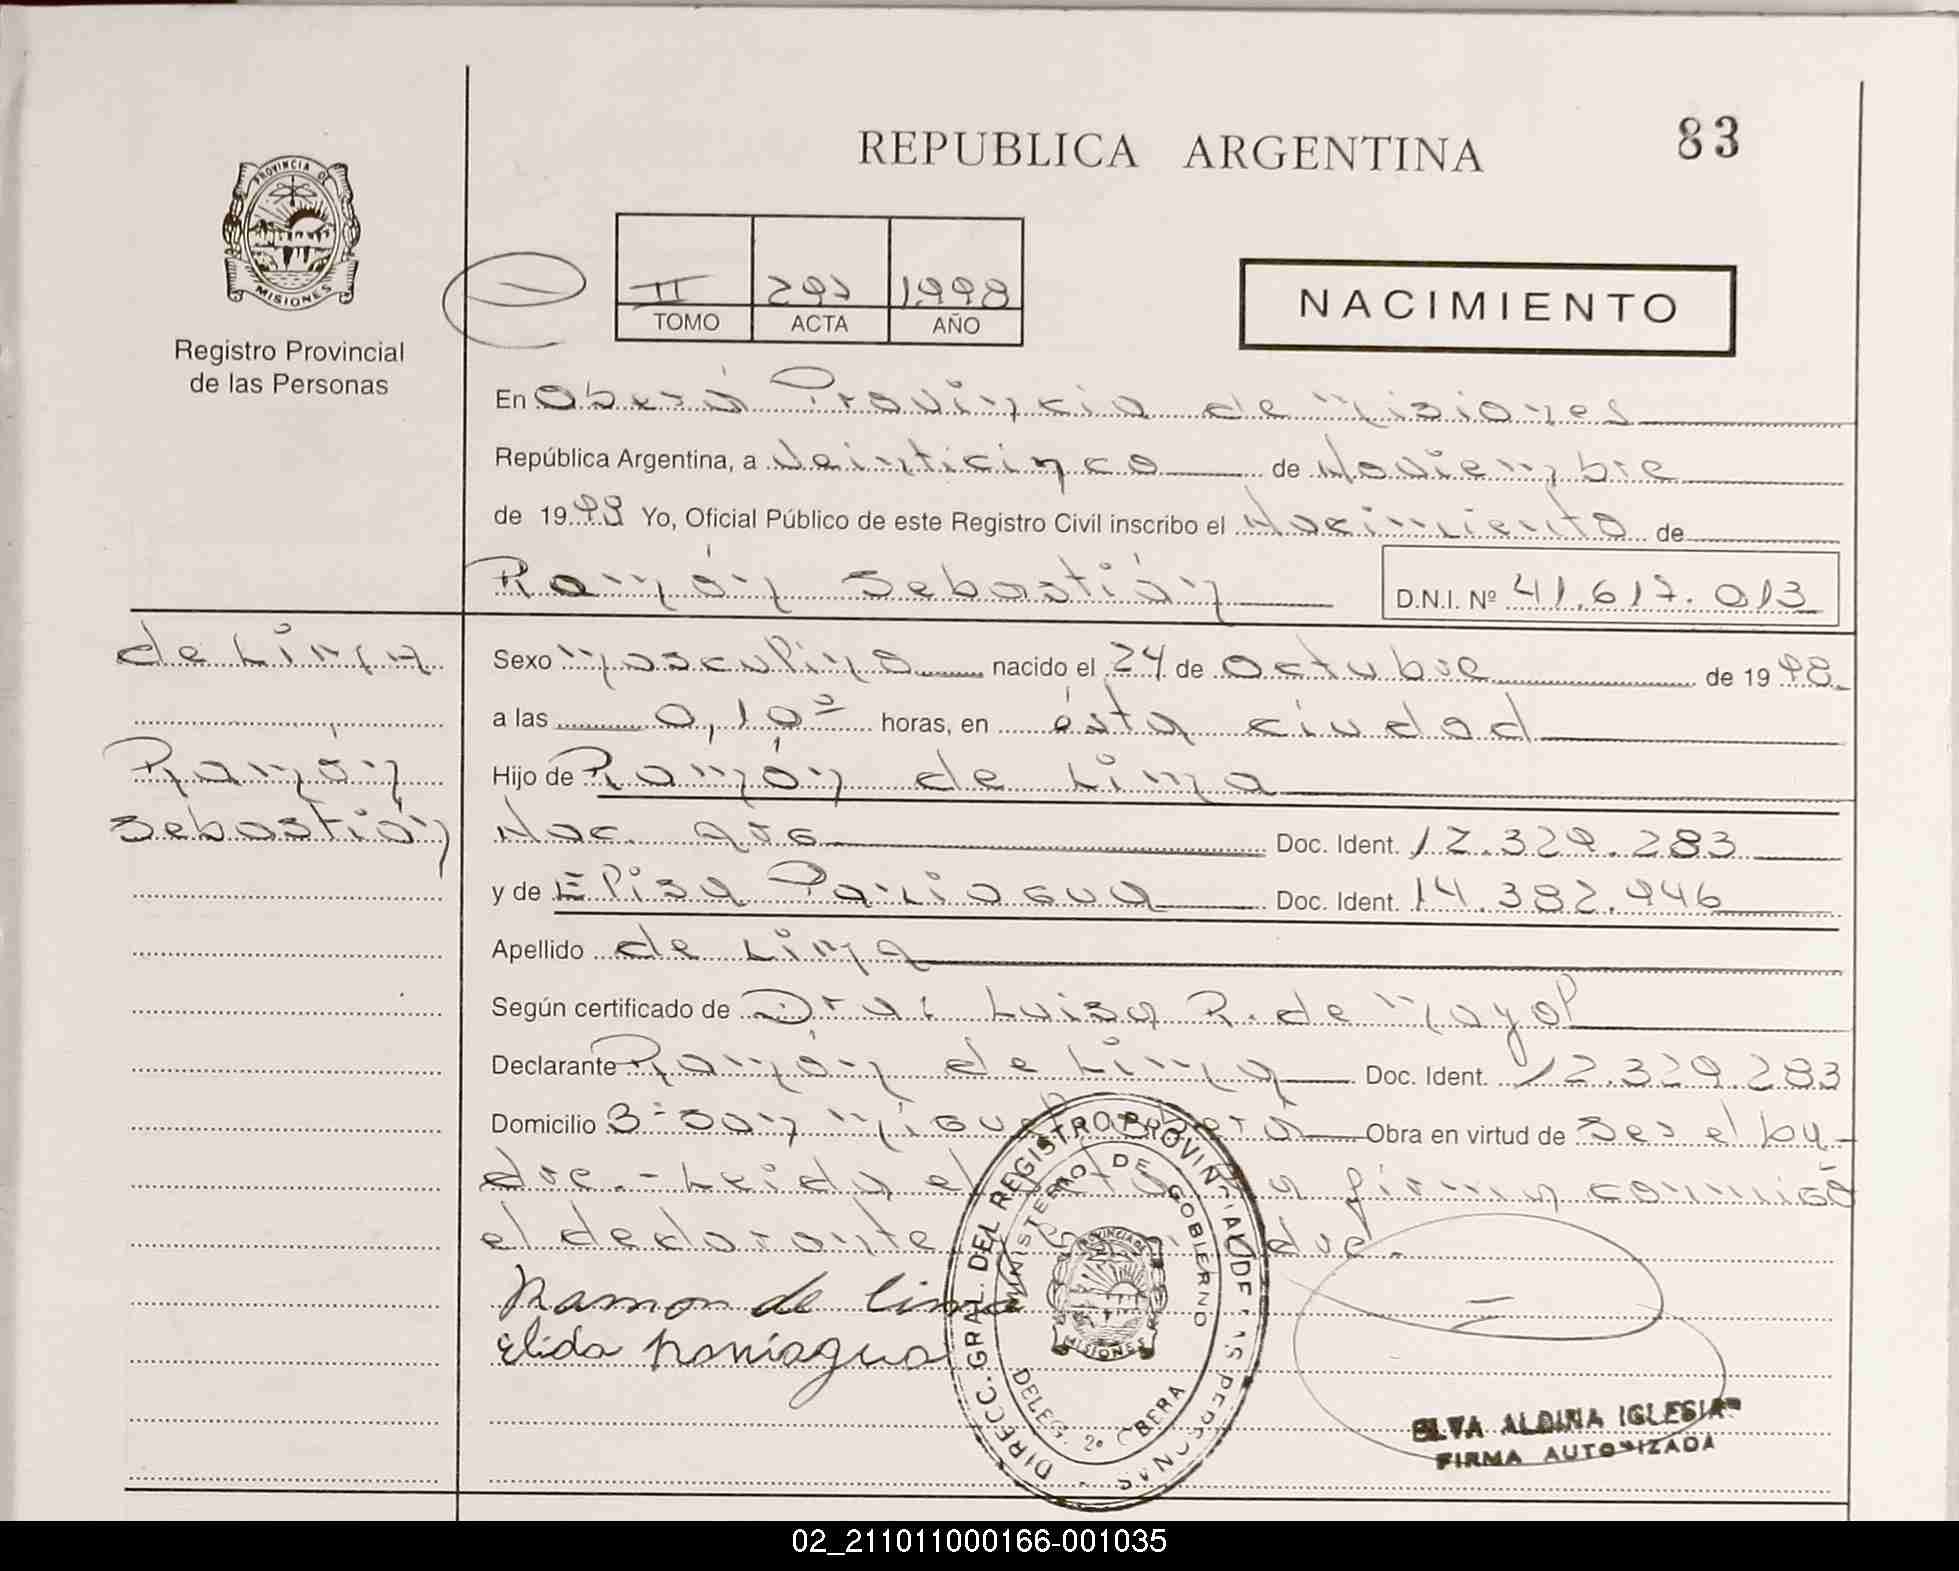 REPUBLICA ARGENTINA
83
PROVINCIA DE
MISIONES
Registro Provincial
de las Personas
II 1998
TOMO ACTA AÑO
NACIMIENTO
En Oberá Provincia de Misiones
República Argentina, a Veinticinco de Noviembre
de 1998 Yo, Oficial Público de este Registro Civil inscribo el Nacimiento de
Ramón Sebastián
D.N.I. Nº 41.617.013
de Lima
Ramón
Sebastián
Sexo masculino nacido el 24 de Octubre de 1998
a las 0,10 horas, en ésta ciudad
Hijo de Ramón de Lima
Nac. Arg Doc. Ident. 12.329.283
y de Elisa Paniagua Doc. Ident. 14.382.946
Apellido de Lima
Según certificado de Dra: Luisa R. de Mayol
Declarante Ramón de Lima Doc. Ident. 12.329.283
Domicilio Bº San Miguel Oberá Obra en virtud de ser el pa-
dre.- Leida el acta la firma conmigo
el declarante y la madre.
Ramon de lima
elida paniagua
DIRECC. GRAL. DEL REGISTRO PROVINCIAL DE LAS PERSONAS
MINISTERIO DE GOBIERNO
PROVINCIA DE
MISIONES
DELEG. 2º OBERA
ELVA ALDINA IGLESIAS
FIRMA AUTORIZADA
02_211011000166-001035